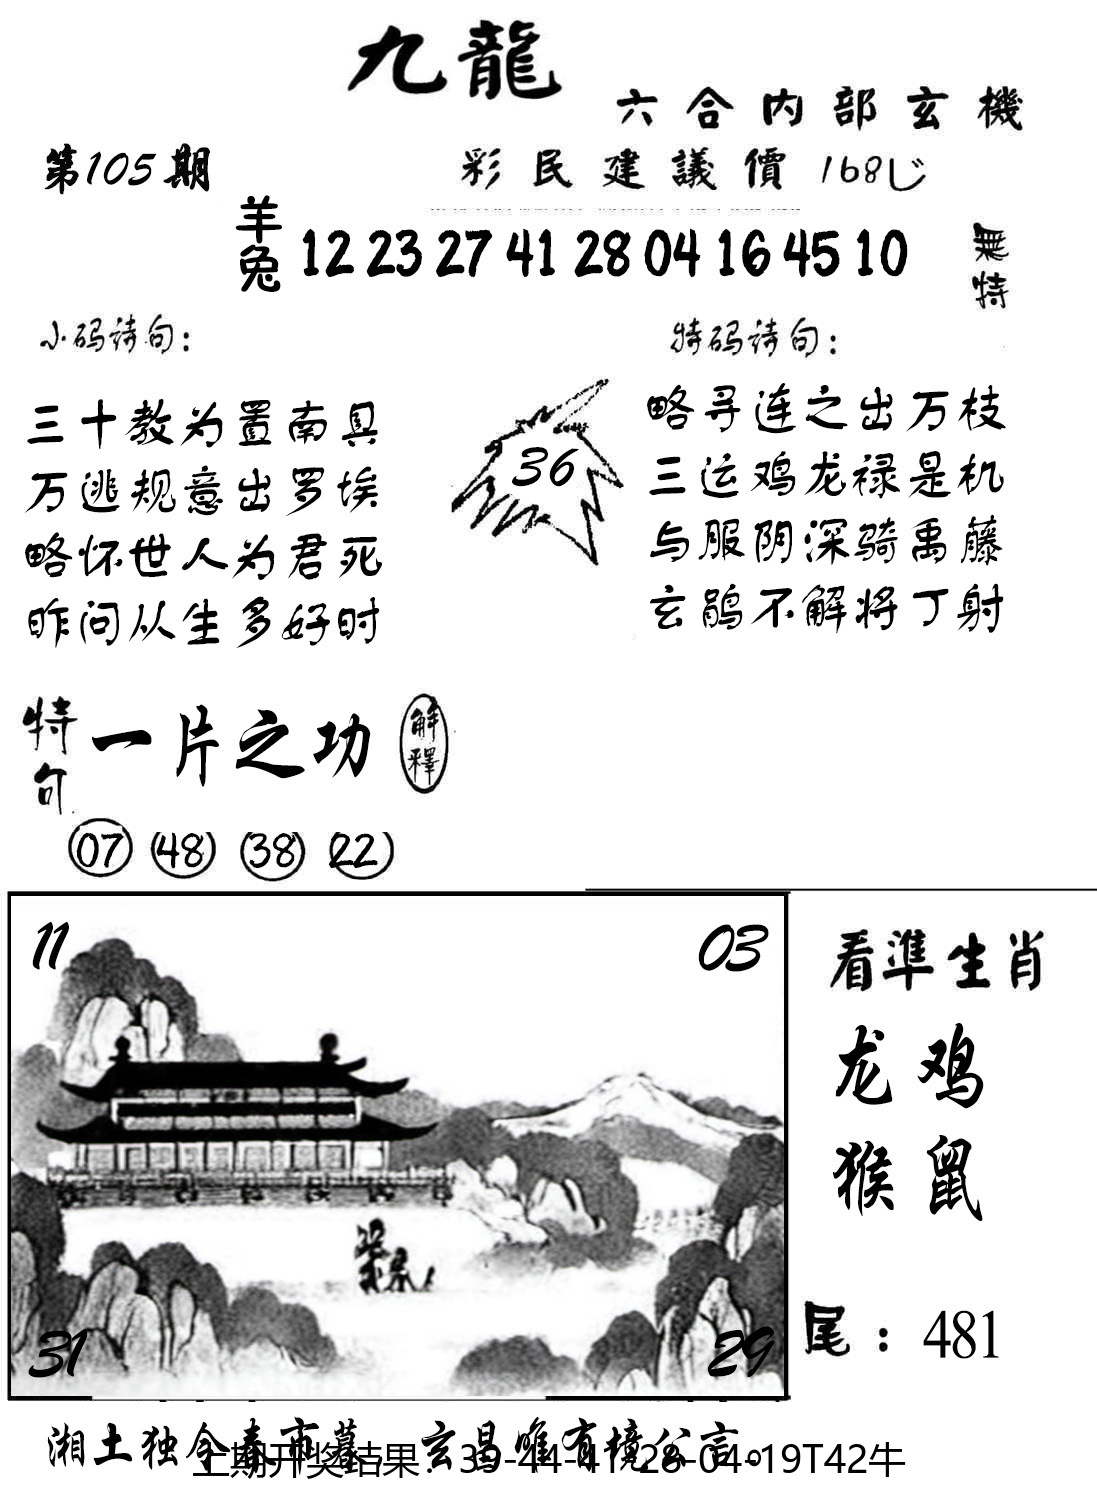 九龍
六合内部玄機
第105期
彩民建議價 168
羊兔 12 23 27 41 28 04 16 45 10
無特
小码诗句：
三十教为置南具
万逃规意出罗埃
略怀世人为君死
昨问从生多好时
36
特码诗句：
略寻连之出万枝
三运鸡龙禄是机
与服阴深骑禹藤
玄鹃不解将丁射
特句 一片之功 解釋
07 48 38 22
11 03
31 29
看準生肖
龙鸡
猴鼠
尾：481
湘土独令春市暮 玄昌唯有境公言。
上期开奖结果：39-44-41-28-04-19T42牛